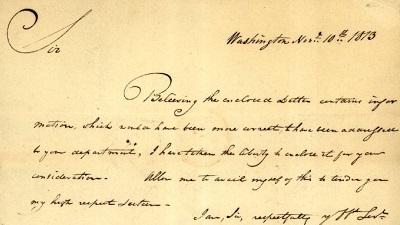 Washington Nov.r 10th 1813
Sir
Believing the enclosed Letter contains infor
mation, which would have been more correct to have been addressed
to your department, I have taken the liberty to enclose it for your
consideration - Allow me to avail myself of this to tender you
my high respect &
I am, Sir, respectfully yr Ht Servt